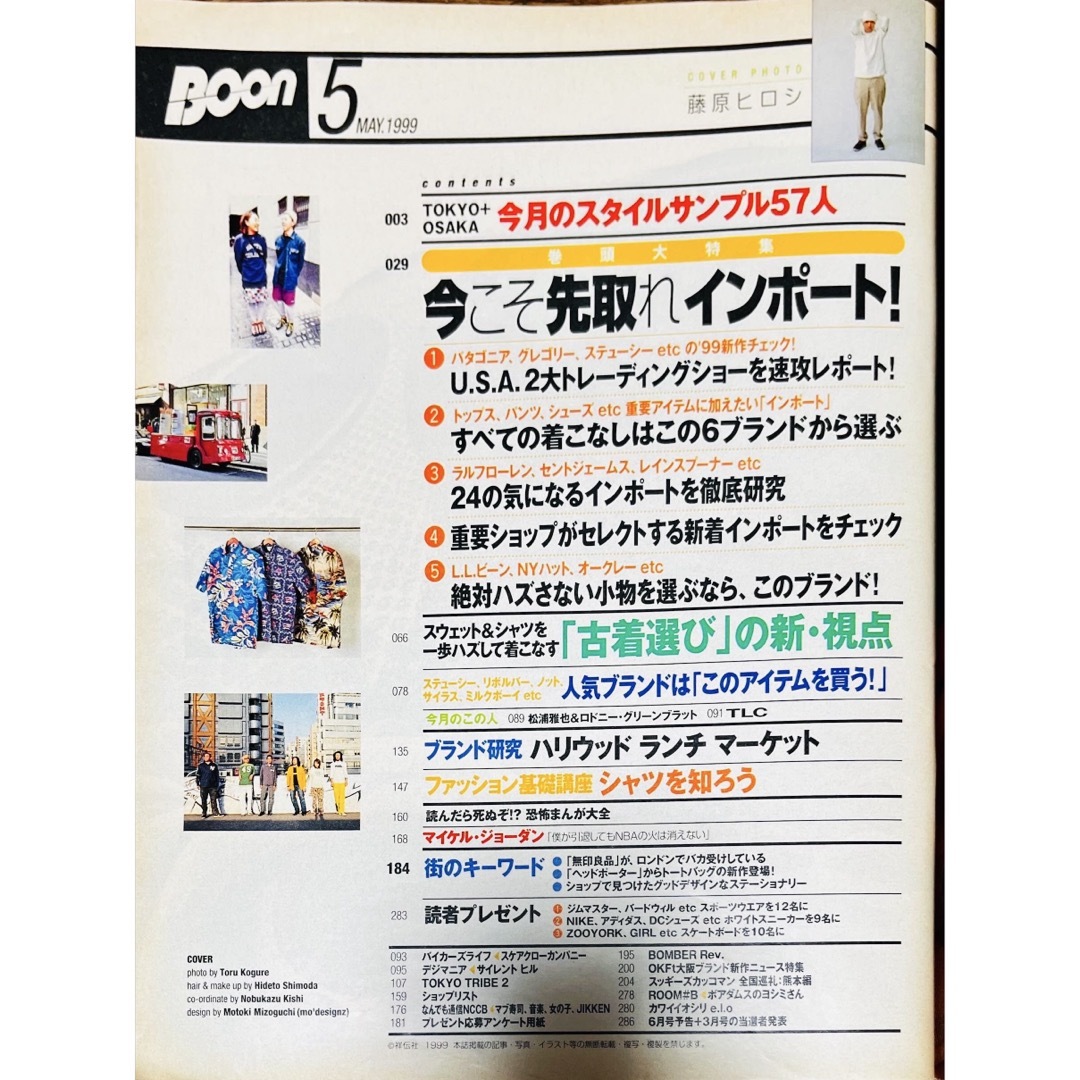 Boon 5 MAY.1999
COVER PHOTO
藤原ヒロシ
contents
003 TOKYO+
OSAKA 今月のスタイルサンプル57人
029 巻頭大特集
今こそ先取れインポート!
1 パタゴニア、グレゴリー、ステューシー etc の'99新作チェック!
U.S.A. 2大トレーディングショーを速攻レポート!
2 トップス、パンツ、シューズ etc 重要アイテムに加えたい「インポート」
すべての着こなしはこの6ブランドから選ぶ
3 ラルフローレン、セントジェームス、レインスプーナー etc
24の気になるインポートを徹底研究
4 重要ショップがセレクトする新着インポートをチェック
5 L.L.ビーン、NYハット、オークレー etc
絶対ハズさない小物を選ぶなら、このブランド!
066 スウェット&シャツを
一歩ハズして着こなす 「古着選び」の新・視点
078 ステューシー、リボルバー、ノット、
サイラス、ミルクボーイ etc 人気ブランドは「このアイテムを買う!」
今月のこの人 089 松浦雅也&ロドニー・グリーンブラット 091 TLC
135 ブランド研究 ハリウッド ランチ マーケット
147 ファッション基礎講座 シャツを知ろう
160 読んだら死ぬぞ!? 恐怖まんが大全
168 マイケル・ジョーダン 「僕が引退してもNBAの火は消えない」
184 街のキーワード ●「無印良品」が、ロンドンでバカ受けしている
●「ヘッドポーター」からトートバッグの新作登場!
●ショップで見つけたグッドデザインなステーショナリー
283 読者プレゼント 1 ジムマスター、バードウィル etc スポーツウエアを12名に
2 NIKE、アディダス、DCシューズ etc ホワイトスニーカーを9名に
3 ZOOYORK、GIRL etc スケートボードを10名に
093 バイカーズライフ ◀スケアクローカンパニー
095 デジマニア ◀サイレント ヒル
107 TOKYO TRIBE 2
159 ショップリスト
176 なんでも通信NCCB ◀マブ寿司、音楽、女の子、JIKKEN
181 プレゼント応募アンケート用紙
195 BOMBER Rev.
200 OKFt大阪ブランド新作ニュース特集
204 スッギーズカッコマン 全国巡礼:熊本編
278 ROOM#B ◀ボアダムスのヨシミさん
280 カワイイオシリ e.l.o
286 6月号予告+3月号の当選者発表
COVER
photo by Toru Kogure
hair & make up by Hideto Shimoda
co-ordinate by Nobukazu Kishi
design by Motoki Mizoguchi (mo'designz)
©祥伝社 1999 本誌掲載の記事・写真・イラスト等の無断転載・複写・複製を禁じます。